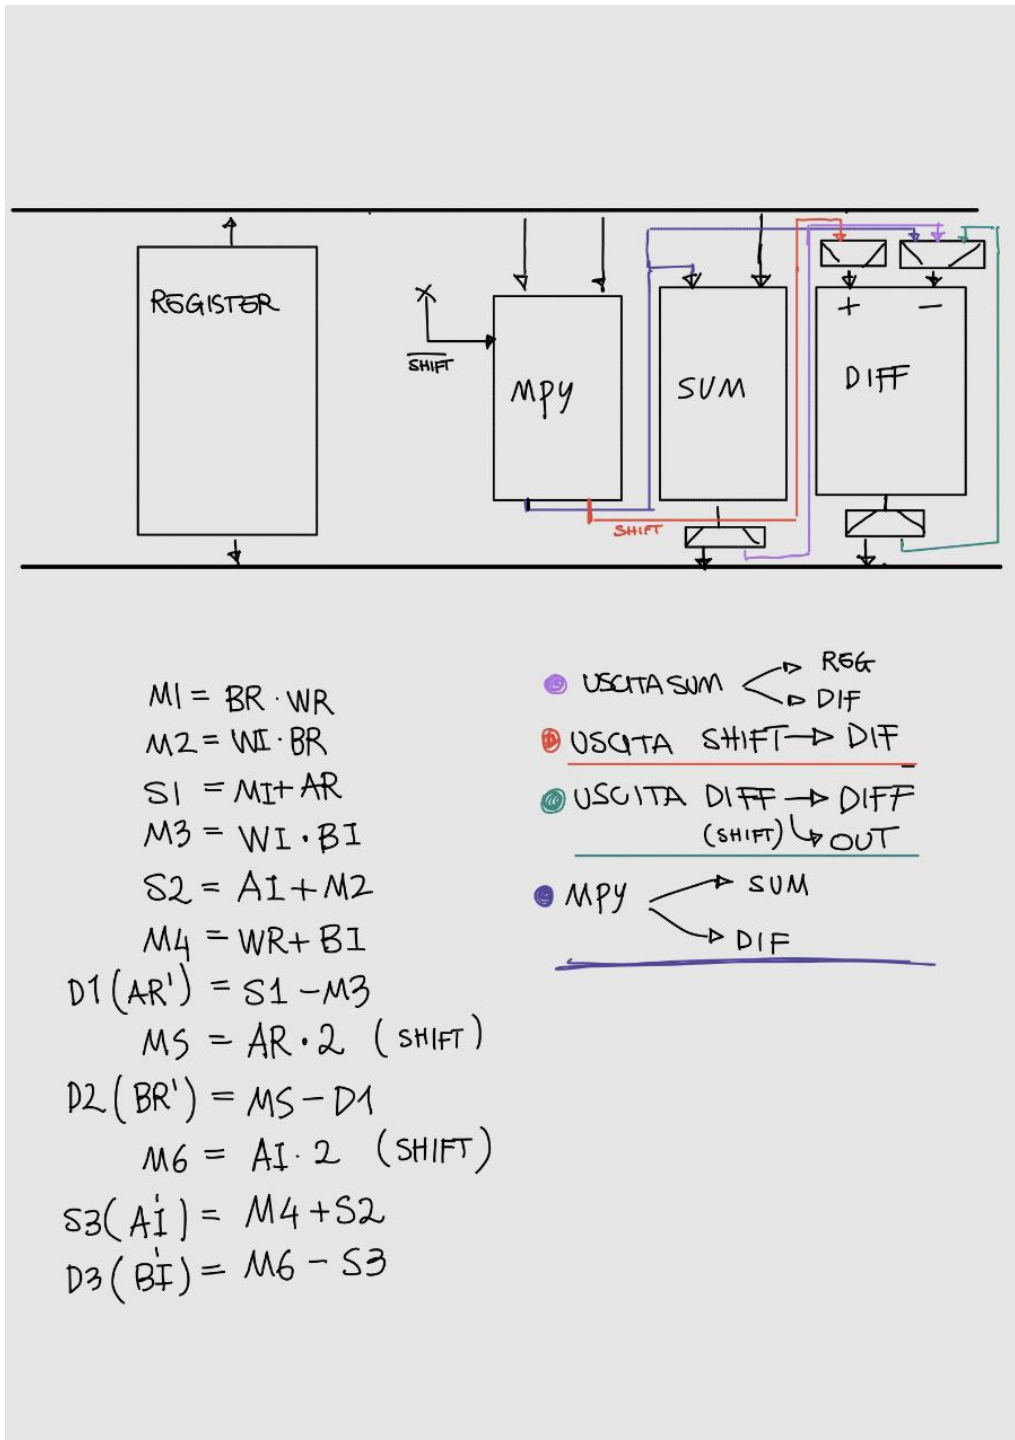 REGISTER
X
SHIFT
MPY
SUM
+ −
DIFF
SHIFT
M1 = BR · WR
M2 = WI · BR
S1 = M1 + AR
M3 = WI · BI
S2 = AI + M2
M4 = WR + BI
D1 (AR') = S1 − M3
M5 = AR · 2 (SHIFT)
D2 (BR') = M5 − D1
M6 = AI · 2 (SHIFT)
S3 (AI') = M4 + S2
D3 (BI') = M6 − S3
USCITA SUM → REG
→ DIF
USCITA SHIFT → DIF
USCITA DIFF → DIFF
(SHIFT) → OUT
MPY → SUM
→ DIF